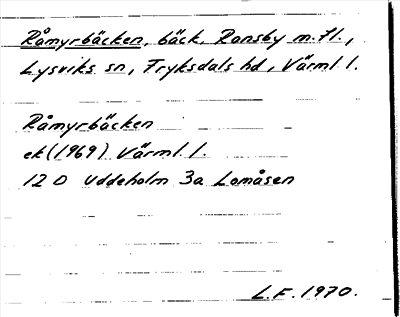 Råmyrbäcken, bäck, Ransby m.fl.,
Lysviks sn, Fryksdals hd, Värml. l.
Råmyrbäcken
ek (1969) Värml. l.
12 D Uddeholm 3a Lomåsen
L.F. 1970.